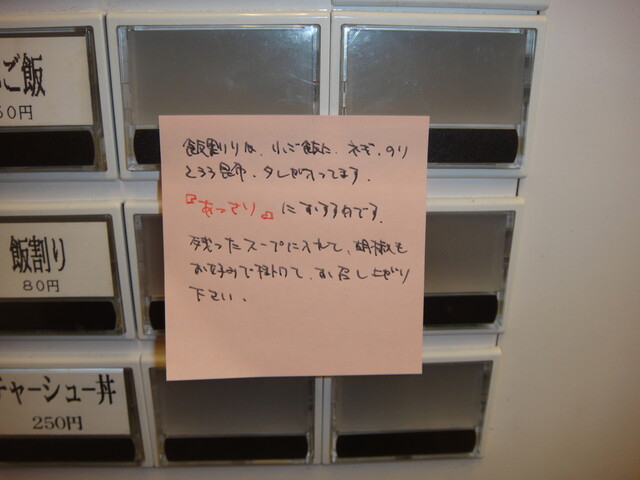 ご飯
50円
飯割り
80円
チャーシュー丼
250円
飯割りは、小ご飯に、ネギ、のり
とろろ昆布、タレが入ってます。
『あっさり』におすすめです。
残ったスープに入れて、胡椒も
お好みで掛けて、お召し上がり
下さい。